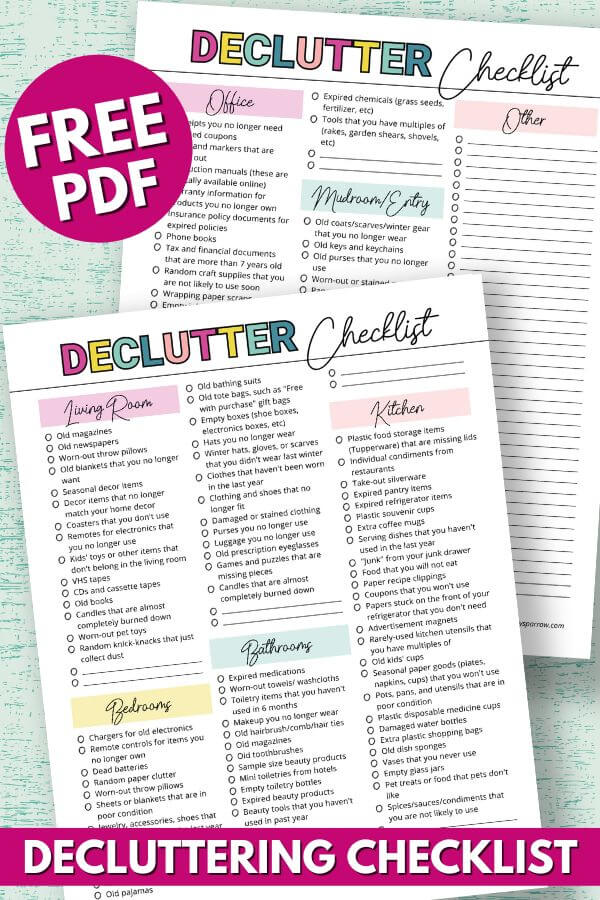 FREE
PDF
DECLUTTER Checklist
Office
you no longer need
coupons
and markers that are
out
manuals (these are
available online)
information for
products you no longer own
Insurance policy documents for
expired policies
Phone books
Tax and financial documents
that are more than 7 years old
Random craft supplies that you
are not likely to use soon
Wrapping paper scraps
Expired chemicals (grass seeds,
fertilizer, etc)
Tools that you have multiples of
(rakes, garden shears, shovels,
etc)
Mudroom/Entry
Old coats/scarves/winter gear
that you no longer wear
Old keys and keychains
Old purses that you no longer
use
Worn-out or stained
Other
DECLUTTER Checklist
Living Room
Old magazines
Old newspapers
Worn-out throw pillows
Old blankets that you no longer
want
Seasonal decor items
Decor items that no longer
match your home decor
Coasters that you don't use
Remotes for electronics that
you no longer use
Kids' toys or other items that
don't belong in the living room
VHS tapes
CDs and cassette tapes
Old books
Candles that are almost
completely burned down
Worn-out pet toys
Random knick-knacks that just
collect dust
Bedrooms
Chargers for old electronics
Remote controls for items you
no longer own
Dead batteries
Random paper clutter
Worn-out throw pillows
Sheets or blankets that are in
poor condition
Jewelry, accessories, shoes that
last year
Old pajamas
Old bathing suits
Old tote bags, such as "Free
with purchase" gift bags
Empty boxes (shoe boxes,
electronics boxes, etc)
Hats you no longer wear
Winter hats, gloves, or scarves
that you didn't wear last winter
Clothes that haven't been worn
in the last year
Clothing and shoes that no
longer fit
Damaged or stained clothing
Purses you no longer use
Luggage you no longer use
Old prescription eyeglasses
Games and puzzles that are
missing pieces
Candles that are almost
completely burned down
Bathrooms
Expired medications
Worn-out towels/ washcloths
Toiletry items that you haven't
used in 6 months
Makeup you no longer wear
Old hairbrush/comb/hair ties
Old magazines
Old toothbrushes
Sample size beauty products
Mini toiletries from hotels
Empty toiletry bottles
Expired beauty products
Beauty tools that you haven't
used in past year
Kitchen
Plastic food storage items
(Tupperware) that are missing lids
Individual condiments from
restaurants
Take-out silverware
Expired pantry items
Expired refrigerator items
Plastic souvenir cups
Extra coffee mugs
Serving dishes that you haven't
used in the last year
"Junk" from your junk drawer
Food that you will not eat
Paper recipe clippings
Coupons that you won't use
Papers stuck on the front of your
refrigerator that you don't need
Advertisement magnets
Rarely-used kitchen utensils that
you have multiples of
Old kids' cups
Seasonal paper goods (plates,
napkins, cups) that you won't use
Pots, pans, and utensils that are in
poor condition
Plastic disposable medicine cups
Damaged water bottles
Extra plastic shopping bags
Old dish sponges
Vases that you never use
Empty glass jars
Pet treats or food that pets don't
like
Spices/sauces/condiments that
you are not likely to use
sparrow.com
DECLUTTERING CHECKLIST